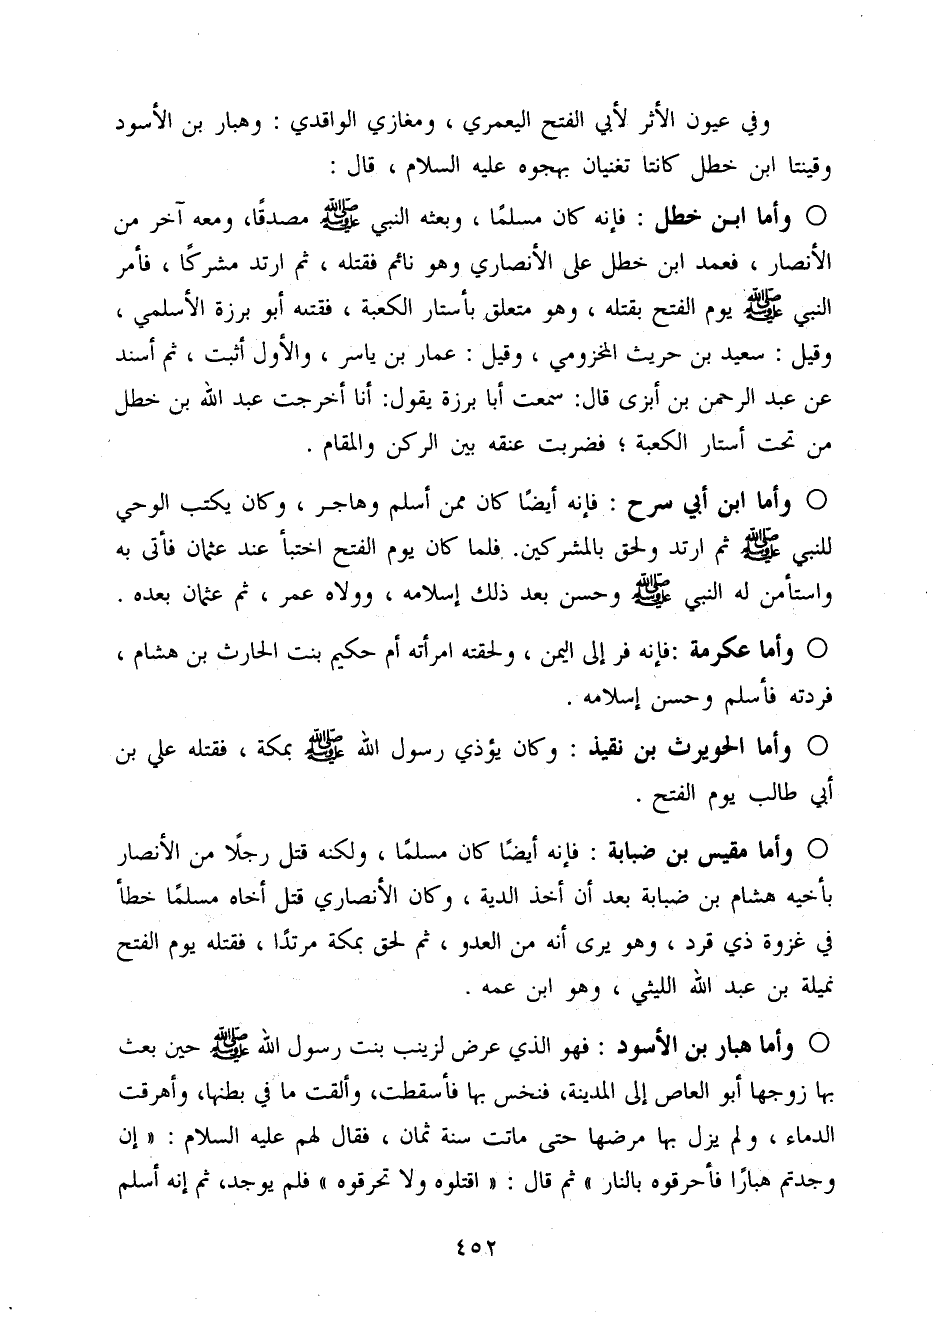 وفي عيون الأثر لأبي الفتح اليعمري ، ومغازي الواقدي : وهبار بن الأسود
وقينتا ابن خطل كانتا تغنيان بهجوه عليه السلام ، قال :
○ وأما ابن خطل : فإنه كان مسلمًا ، وبعثه النبي ﷺ مصدقًا، ومعه آخر من
الأنصار ، فعمد ابن خطل على الأنصاري وهو نائم فقتله ، ثم ارتد مشركًا ، فأمر
النبي ﷺ يوم الفتح بقتله ، وهو متعلق بأستار الكعبة ، فقتله أبو برزة الأسلمي ،
وقيل : سعيد بن حريث المخزومي ، وقيل : عمار بن ياسر ، والأول أثبت ، ثم أسند
عن عبد الرحمن بن أبزى قال: سمعت أبا برزة يقول: أنا أخرجت عبد الله بن خطل
من تحت أستار الكعبة ؛ فضربت عنقه بين الركن والمقام .
○ وأما ابن أبي سرح : فإنه أيضًا كان ممن أسلم وهاجر ، وكان يكتب الوحي
للنبي ﷺ ثم ارتد ولحق بالمشركين. فلما كان يوم الفتح اختبأ عند عثمان فأتى به
واستأمن له النبي ﷺ وحسن بعد ذلك إسلامه ، وولاه عمر ، ثم عثمان بعده .
○ وأما عكرمة :فإنه فر إلى اليمن ، ولحقته امرأته أم حكيم بنت الحارث بن هشام ،
فردته فأسلم وحسن إسلامه .
○ وأما الحويرث بن نقيذ : وكان يؤذي رسول الله ﷺ بمكة ، فقتله علي بن
أبي طالب يوم الفتح .
○ وأما مقيس بن ضبابة : فإنه أيضًا كان مسلمًا ، ولكنه قتل رجلًا من الأنصار
بأخيه هشام بن ضبابة بعد أن أخذ الدية ، وكان الأنصاري قتل أخاه مسلمًا خطأ
في غزوة ذي قرد ، وهو يرى أنه من العدو ، ثم لحق بمكة مرتدًا ، فقتله يوم الفتح
نميلة بن عبد الله الليثي ، وهو ابن عمه .
○ وأما هبار بن الأسود : فهو الذي عرض لزينب بنت رسول الله ﷺ حين بعث
بها زوجها أبو العاص إلى المدينة، فنخس بها فأسقطت، وألقت ما في بطنها، وأهرقت
الدماء ، ولم يزل بها مرضها حتى ماتت سنة ثمان ، فقال لهم عليه السلام : « إن
وجدتم هبارًا فأحرقوه بالنار » ثم قال : « اقتلوه ولا تحرقوه » فلم يوجد، ثم إنه أسلم
٤٥٢